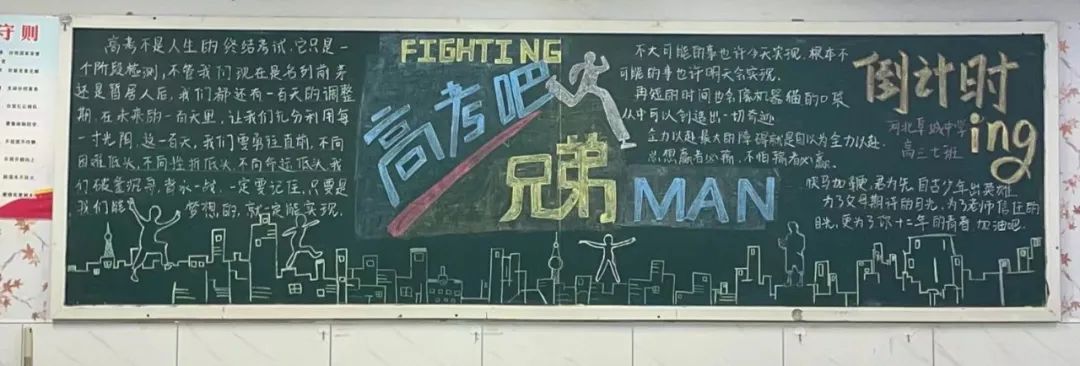 守则
高考不是人生的终结考试,它只是一
个阶段检测,不管我们现在是名列前茅
还是暂居人后,我们都还有一百天的调整
期,在未来的一百天里,让我们充分利用每
一寸光阴,这一百天,我们要勇往直前,不向
困难低头,不向挫折低头,不向命运低头,我
们破釜沉舟,背水一战,一定要记住,只要是
我们能 梦想的,就一定能实现.
FIGHTING
高考吧
兄弟 MAN
不大可能的事也许今天实现,根本不
可能的事也许明天会实现.
再短的时间也会像机器猫的口袋
从中可以创造出一切奇迹
全力以赴最大的障碍就是自以为全力以赴.
思想赢者必赢,不怕输者必赢.
倒计时
ing
河北阜城中学
高三七班
快马加鞭,君为先,自古少年出英雄.
为了父母期许的目光,为了老师信任的
目光,更为了你十二年的青春 加油吧.